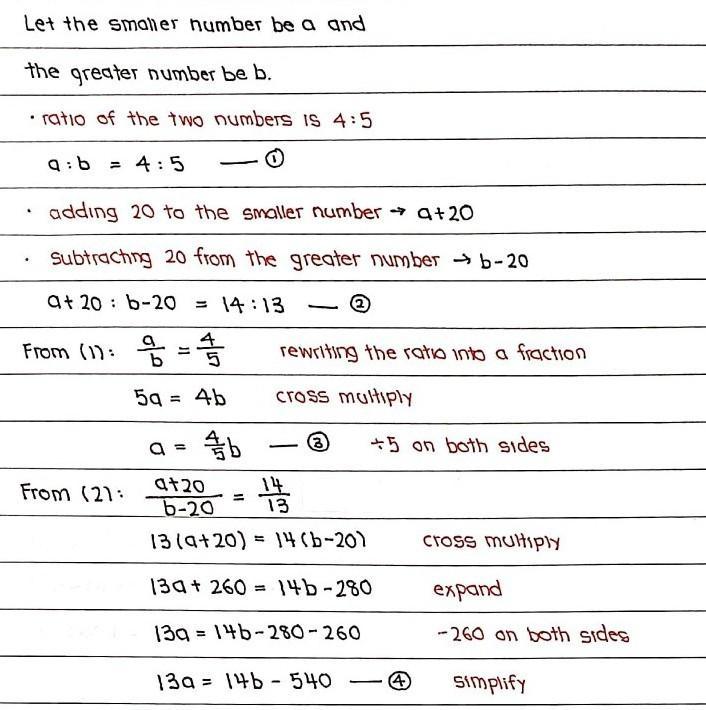 Let the smaller number be a and
the greater number be b.
· ratio of the two numbers is 4:5
a:b = 4:5 — ①
· adding 20 to the smaller number → a+20
· subtracting 20 from the greater number → b-20
a+20 : b-20 = 14:13 — ②
From (1): a/b = 4/5 rewriting the ratio into a fraction
5a = 4b cross multiply
a = 4/5 b — ③ ÷5 on both sides
From (2): a+20/b-20 = 14/13
13(a+20) = 14(b-20) cross multiply
13a + 260 = 14b - 280 expand
13a = 14b - 280 - 260 -260 on both sides
13a = 14b - 540 — ④ simplify